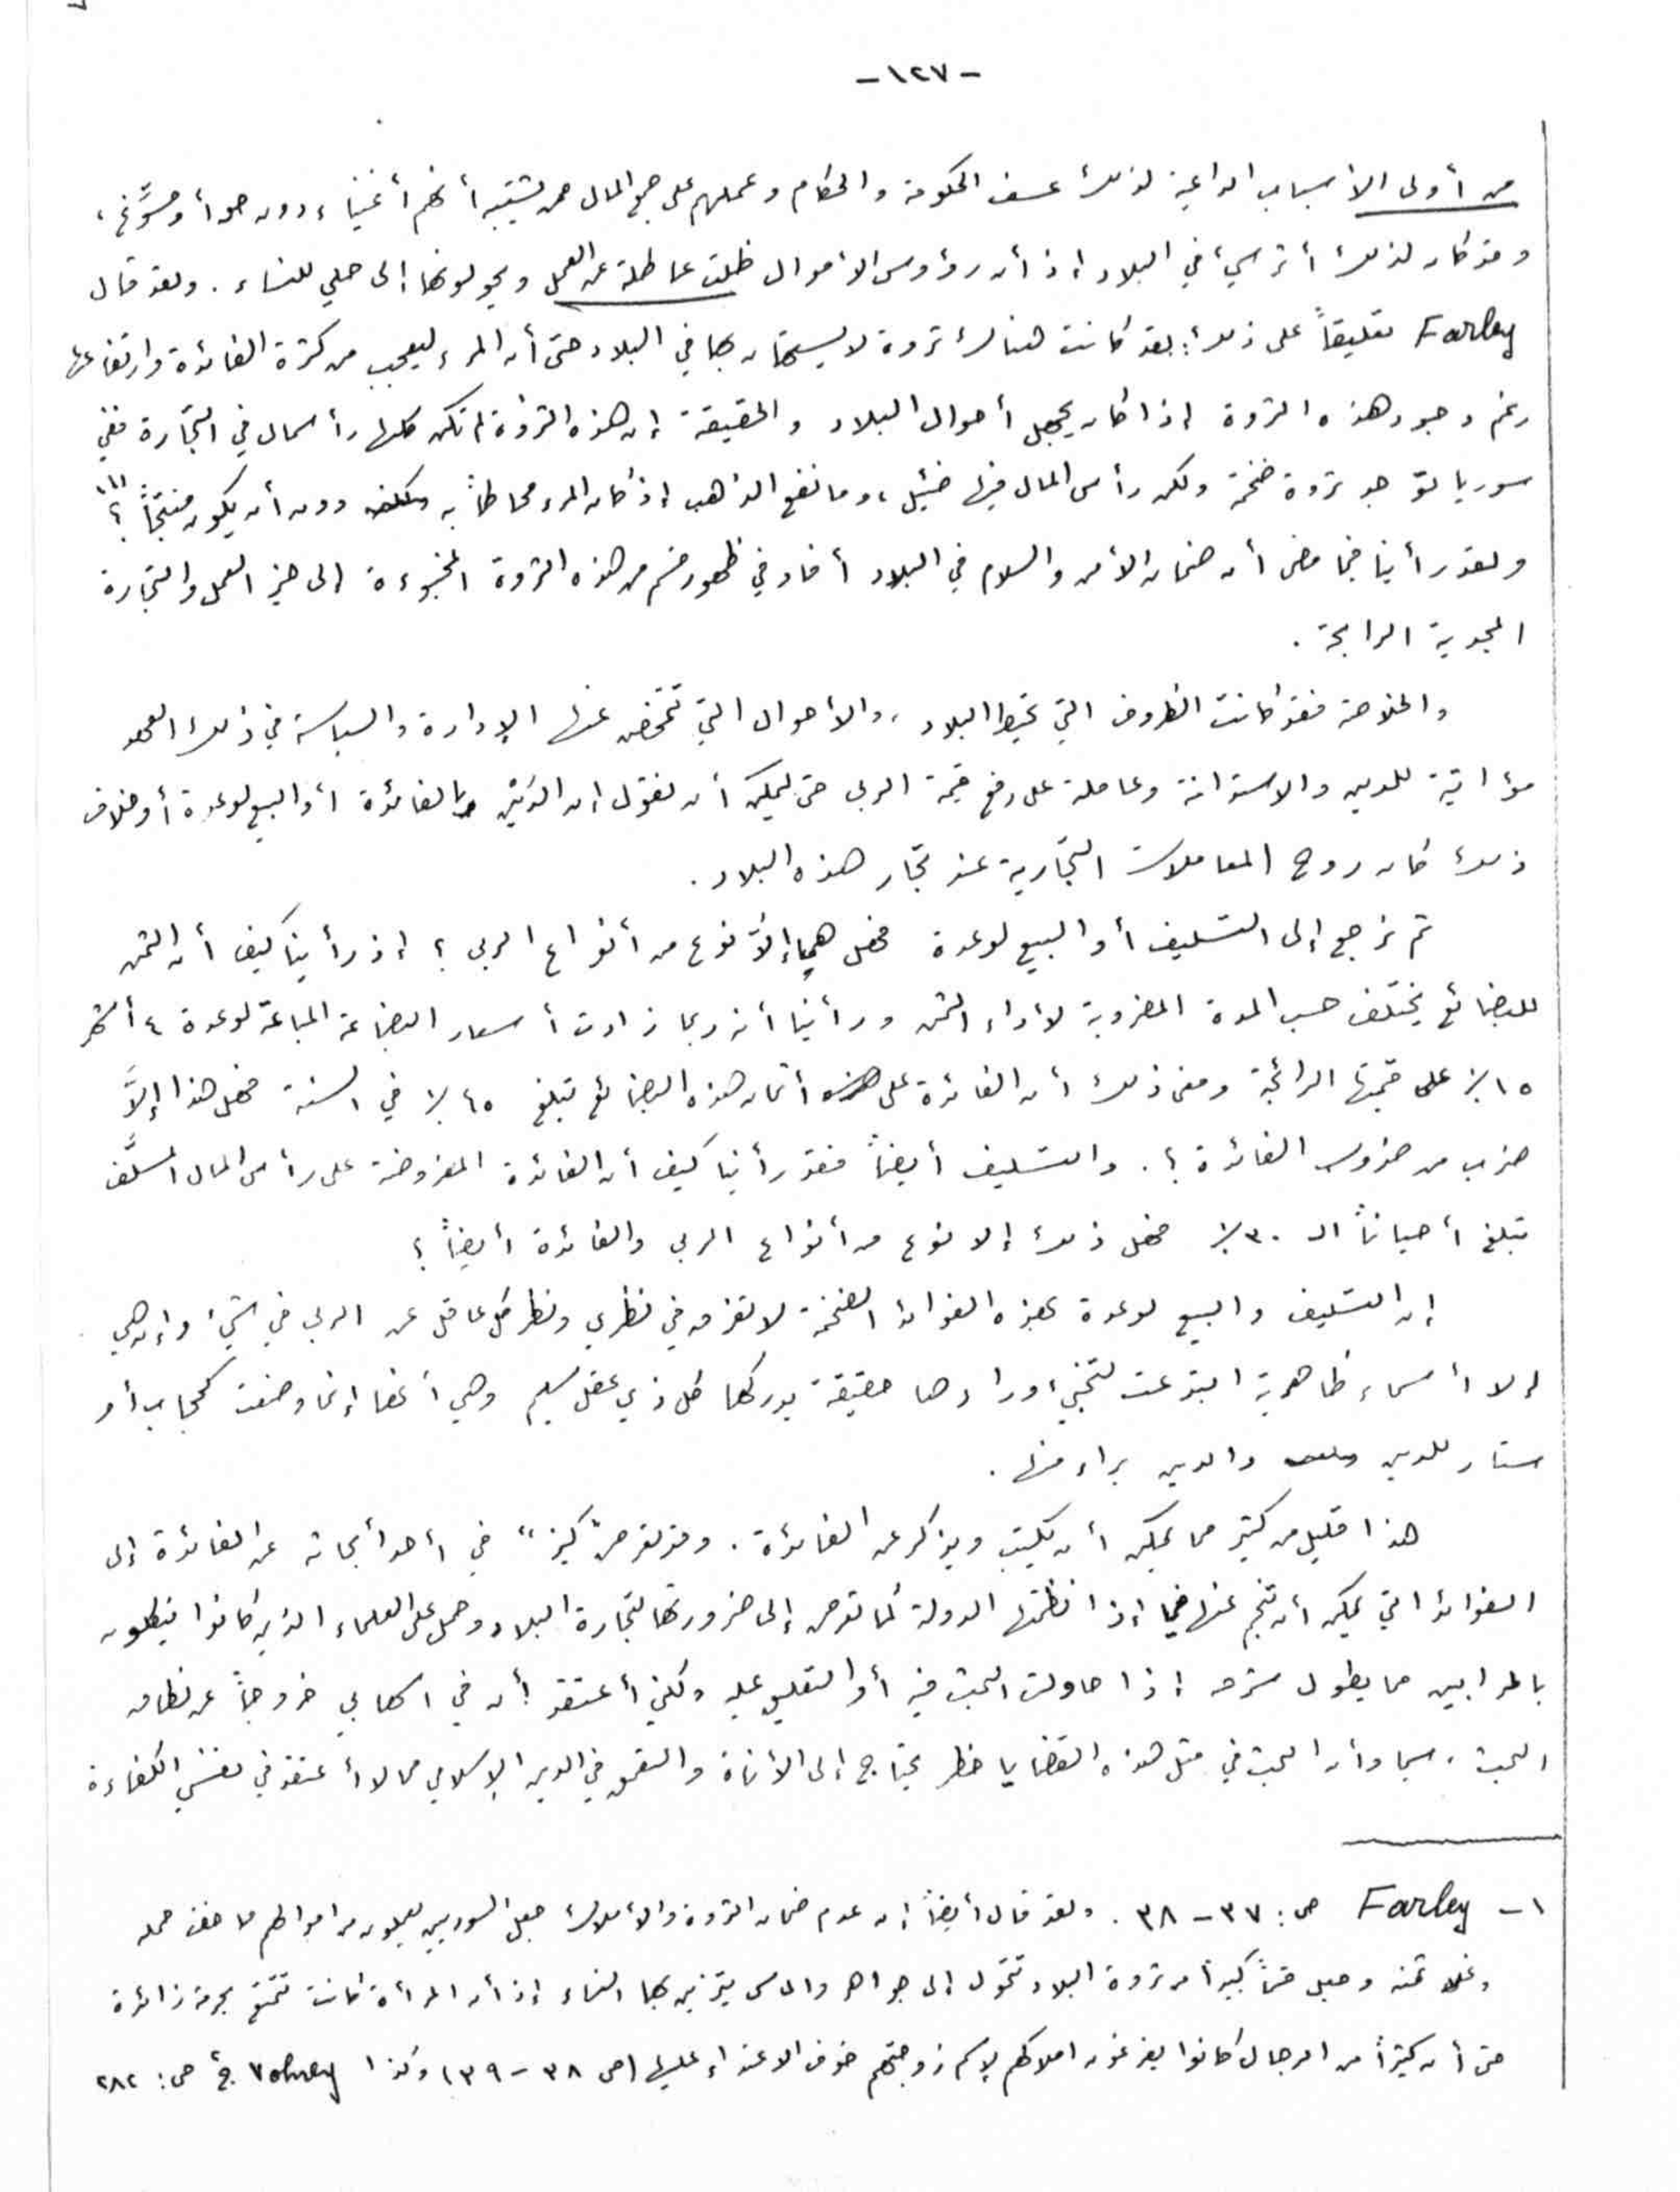 -١٢٧-
من أولى الأسباب الداعية لذلك عسف الحكومة والحكام وعملهم على جمع المال ممن يشتبه أنهم أغنياء دون حق أو مسوَّغ،
وقد كان لذلك أثر سيئ في البلاد إذ أن رؤوس الأموال ظلت عاطلة عن العمل ويحولونها إلى حلي للنساء. ولقد قال
Farley تعليقاً على ذلك: لقد كانت هناك ثروة لا يستهان بها في البلاد حتى أن المرء ليعجب من كثرة الفائدة وارتفاعها
رغم وجود هذه الثروة إذا كان يجهل أحوال البلاد والحقيقة إن هذه الثروة لم تكن كلها رأسمال في التجارة ففي
سوريا توجد ثروة ضخمة ولكن رأس المال فيها ضئيل، وما نفع الذهب إذ كان المرء محاطاً به دون أن يكون منتجاً؟ (١)
ولقد رأينا فيما مضى أن ضمان الأمن والسلام في البلاد أفاد في ظهور قسم من هذه الثروة المخبوءة إلى حيز العمل والتجارة
المجدية الرابحة.
والخلاصة فقد كانت الظروف التي تحيط البلاد، والأحوال التي تتمخض عنها الإدارة والسياسة في ذلك العهد
مؤاتية للدين والاستدانة وعاملة على رفع قيمة الربى حتى ليمكن أن نقول إن الدَيْن بالفائدة أو البيع لوعدة أو خلاف
ذلك كان روح المعاملات التجارية عند تجار هذه البلاد.
ثم نرجع إلى التسليف أو البيع لوعدة فهل هما إلاَّ نوع من أنواع الربى؟ إذ رأينا كيف أن الثمن
للبضائع يختلف حسب المدة المضروبة لأداء الثمن ورأينا أنه ربما زادت أسعار البضاعة المباعة لوعدة ٤ أشهر
١٥٪ على قيمتها الرائجة ومعنى ذلك أن الفائدة على أثمان هذه البضائع تبلغ ٤٥٪ في السنة فهل هذا إلاَّ
ضرب من ضروب الفائدة؟. والتسليف أيضاً فقد رأينا كيف أن الفائدة المفروضة على رأس المال المسلَّف
تبلغ أحياناً الـ ٣٠٪ فهل ذلك إلا نوع من أنواع الربى والفائدة أيضاً؟
إن التسليف والبيع لوعدة بهذه الفوائد الضخمة لا تفرق في نظري ونظر كل عاقل عن الربى في شيء وإن هي
إلا أسماء ظاهرية ابتدعت لتخبئ وراءها حقيقة يدركها كل ذي عقل سليم وهي أنها إنما وضعت كحجاب أو
ستار للدين والدين براء منها.
هذا قليل من كثير مما يمكن أن يكتب ويذكر عن الفائدة. وقد تعرض "كيز" في أحد أبحاثه عن الفائدة إلى
الفوائد التي يمكن أن تنجم عنها فيما إذا نظمتها الدولة كما تعرض إلى ضرورتها لتجارة البلاد وحمل على العلماء الذين كانوا ينكلون
بالمرابين مما يطول شرحه إذا حاولت البحث فيه أو التعليق عليه ولكني أعتقد أن في اسهابي خروجاً عن نطاق
البحث، سيما وأن البحث في مثل هذه القضايا خطر يحتاج إلى الأناة والتعمق في الدين الإسلامي مما لا أعتقد في نفسي الكفاءة
١- Farley ص: ٣٧-٣٨. ولقد قال أيضاً إن عدم ضمان الثروة والأملاك جعل السوريين يجعلون من اموالهم ما خف حمله
وغلا ثمنه وجعل قسماً كبيراً من ثروة البلاد تتحول إلى جواهر والماس يتزين بها النساء إذ أن المرأة كانت تتمتع بحرمة زائدة
حتى أن كثيراً من الرجال كانوا يفرغون املاكهم بإسم زوجتهم خوف الاعتداء عليها (ص ٣٨-٣٩) وكذا Volney ج٢ ص: ٢٨٢